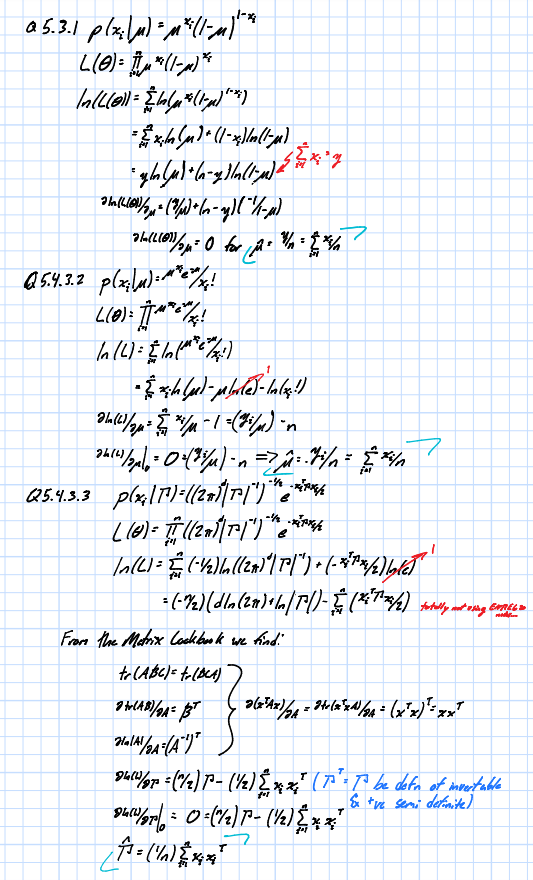 Q 5.3.1 p(xᵢ|μ) = μ^xᵢ (1-μ)^1-xᵢ
L(θ) = ∏ⁿᵢ₌₁ μ^xᵢ (1-μ)^xᵢ
ln(L(θ)) = Σⁿᵢ₌₁ ln(μ^xᵢ (1-μ)^1-xᵢ)
= Σⁿᵢ₌₁ xᵢ ln(μ) + (1-xᵢ) ln(1-μ)
= y ln(μ) + (n-y) ln(1-μ) Σⁿᵢ₌₁ xᵢ = y
∂ln(L(θ))/∂μ = (y/μ) + (n-y)(-1/1-μ)
∂ln(L(θ))/∂μ = 0 for μ̂ = y/n = Σⁿᵢ₌₁ xᵢ/n
Q 5.4.3.2 p(xᵢ|μ) = μ^xᵢ e^-μ/xᵢ!
L(θ) = ∏ⁿᵢ₌₁ μ^xᵢ e^-μ/xᵢ!
ln(L) = Σⁿᵢ₌₁ ln(μ^xᵢ e^-μ/xᵢ!)
= Σⁿᵢ₌₁ xᵢ ln(μ) - μ ln(e) - ln(xᵢ!) 1
∂ln(L)/∂μ = Σⁿᵢ₌₁ xᵢ/μ - 1 = (yᵢ/μ) - n
∂ln(L)/∂μ|₀ = 0 = (yᵢ/μ) - n => μ̂ = yᵢ/n = Σⁿᵢ₌₁ xᵢ/n
Q5.4.3.3 p(xᵢ|Γ) = ((2π)^d |Γ|^-1)^-1/2 e^-xᵢᵀΓxᵢ/2
L(θ) = ∏ⁿᵢ₌₁ ((2π)^d |Γ|^-1)^-1/2 e^-xᵢᵀΓxᵢ/2
ln(L) = Σⁿᵢ₌₁ (-1/2) ln((2π)^d |Γ|^-1) + (-xᵢᵀΓxᵢ/2) ln(e) 1
= (-n/2)(d ln(2π) + ln|Γ|) - Σⁿᵢ₌₁ (xᵢᵀΓxᵢ/2) totally not using
From the Matrix Cookbook we find:
tr(ABC) = tr(BCA)
∂tr(AB)/∂A = Bᵀ ∂(xᵀAx)/∂A = ∂tr(xᵀxA)/∂A = (xᵀx)ᵀ = xxᵀ
∂ln|A|/∂A = (A⁻¹)ᵀ
∂ln(L)/∂Γ = (n/2)Γ - (1/2) Σⁿᵢ₌₁ xᵢ xᵢᵀ (Γᵀ = Γ be defn of invertable
& +ve semi definite)
∂ln(L)/∂Γ|₀ = 0 = (n/2)Γ - (1/2) Σⁿᵢ₌₁ xᵢ xᵢᵀ
Γ̂ = (1/n) Σⁿᵢ₌₁ xᵢ xᵢᵀ